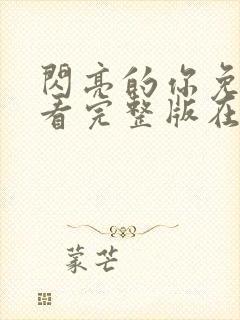 閃亮的你免
看完整版在
蒙芒